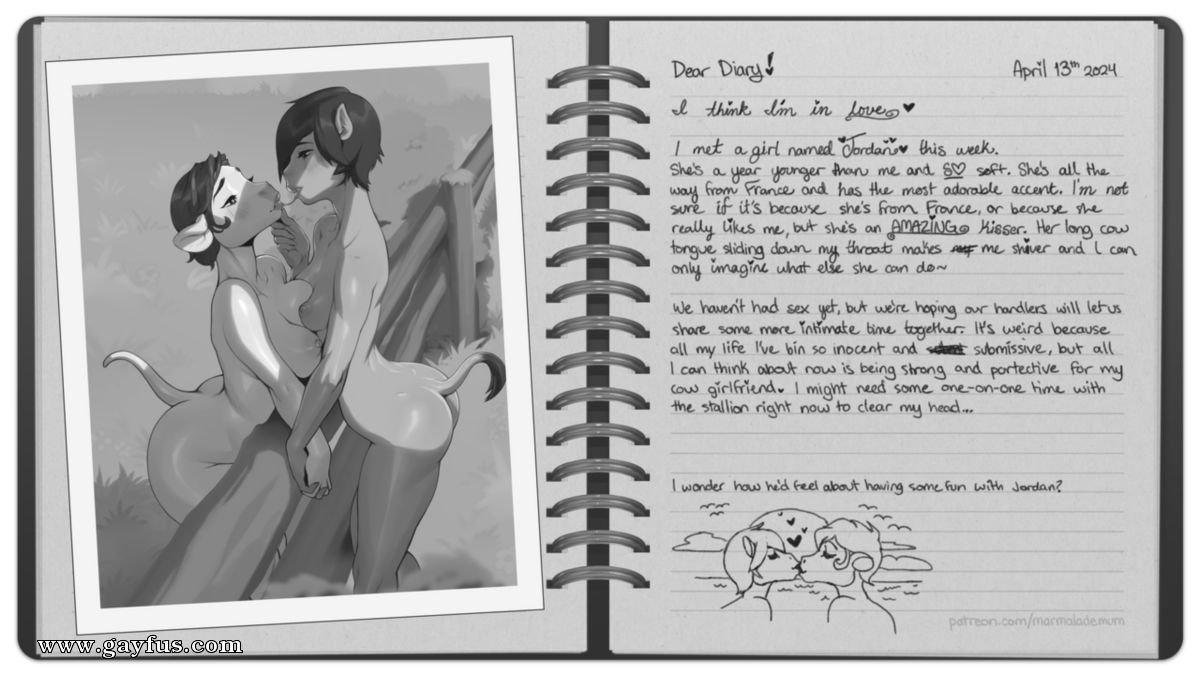 Dear Diary!
April 13th 2024
I think I'm in Love ♥
I met a girl named Jordan♥ this week.
She's a year younger than me and SO soft. She's all the
way from France and has the most adorable accent. I'm not
sure if it's because she's from France, or because she
really likes me, but she's an AMAZING kisser. Her long cow
tongue sliding down my throat makes me shiver and I can
only imagine what else she can do~
We haven't had sex yet, but we're hoping our handlers will let us
share some more intimate time together. It's weird because
all my life I've bin so inocent and submissive, but all
I can think about now is being strong and portective for my
cow girlfriend♥ I might need some one-on-one time with
the stallion right now to clear my head...
I wonder how he'd feel about having some fun with Jordan?
patreon.com/marmalademum
www.gayfus.com